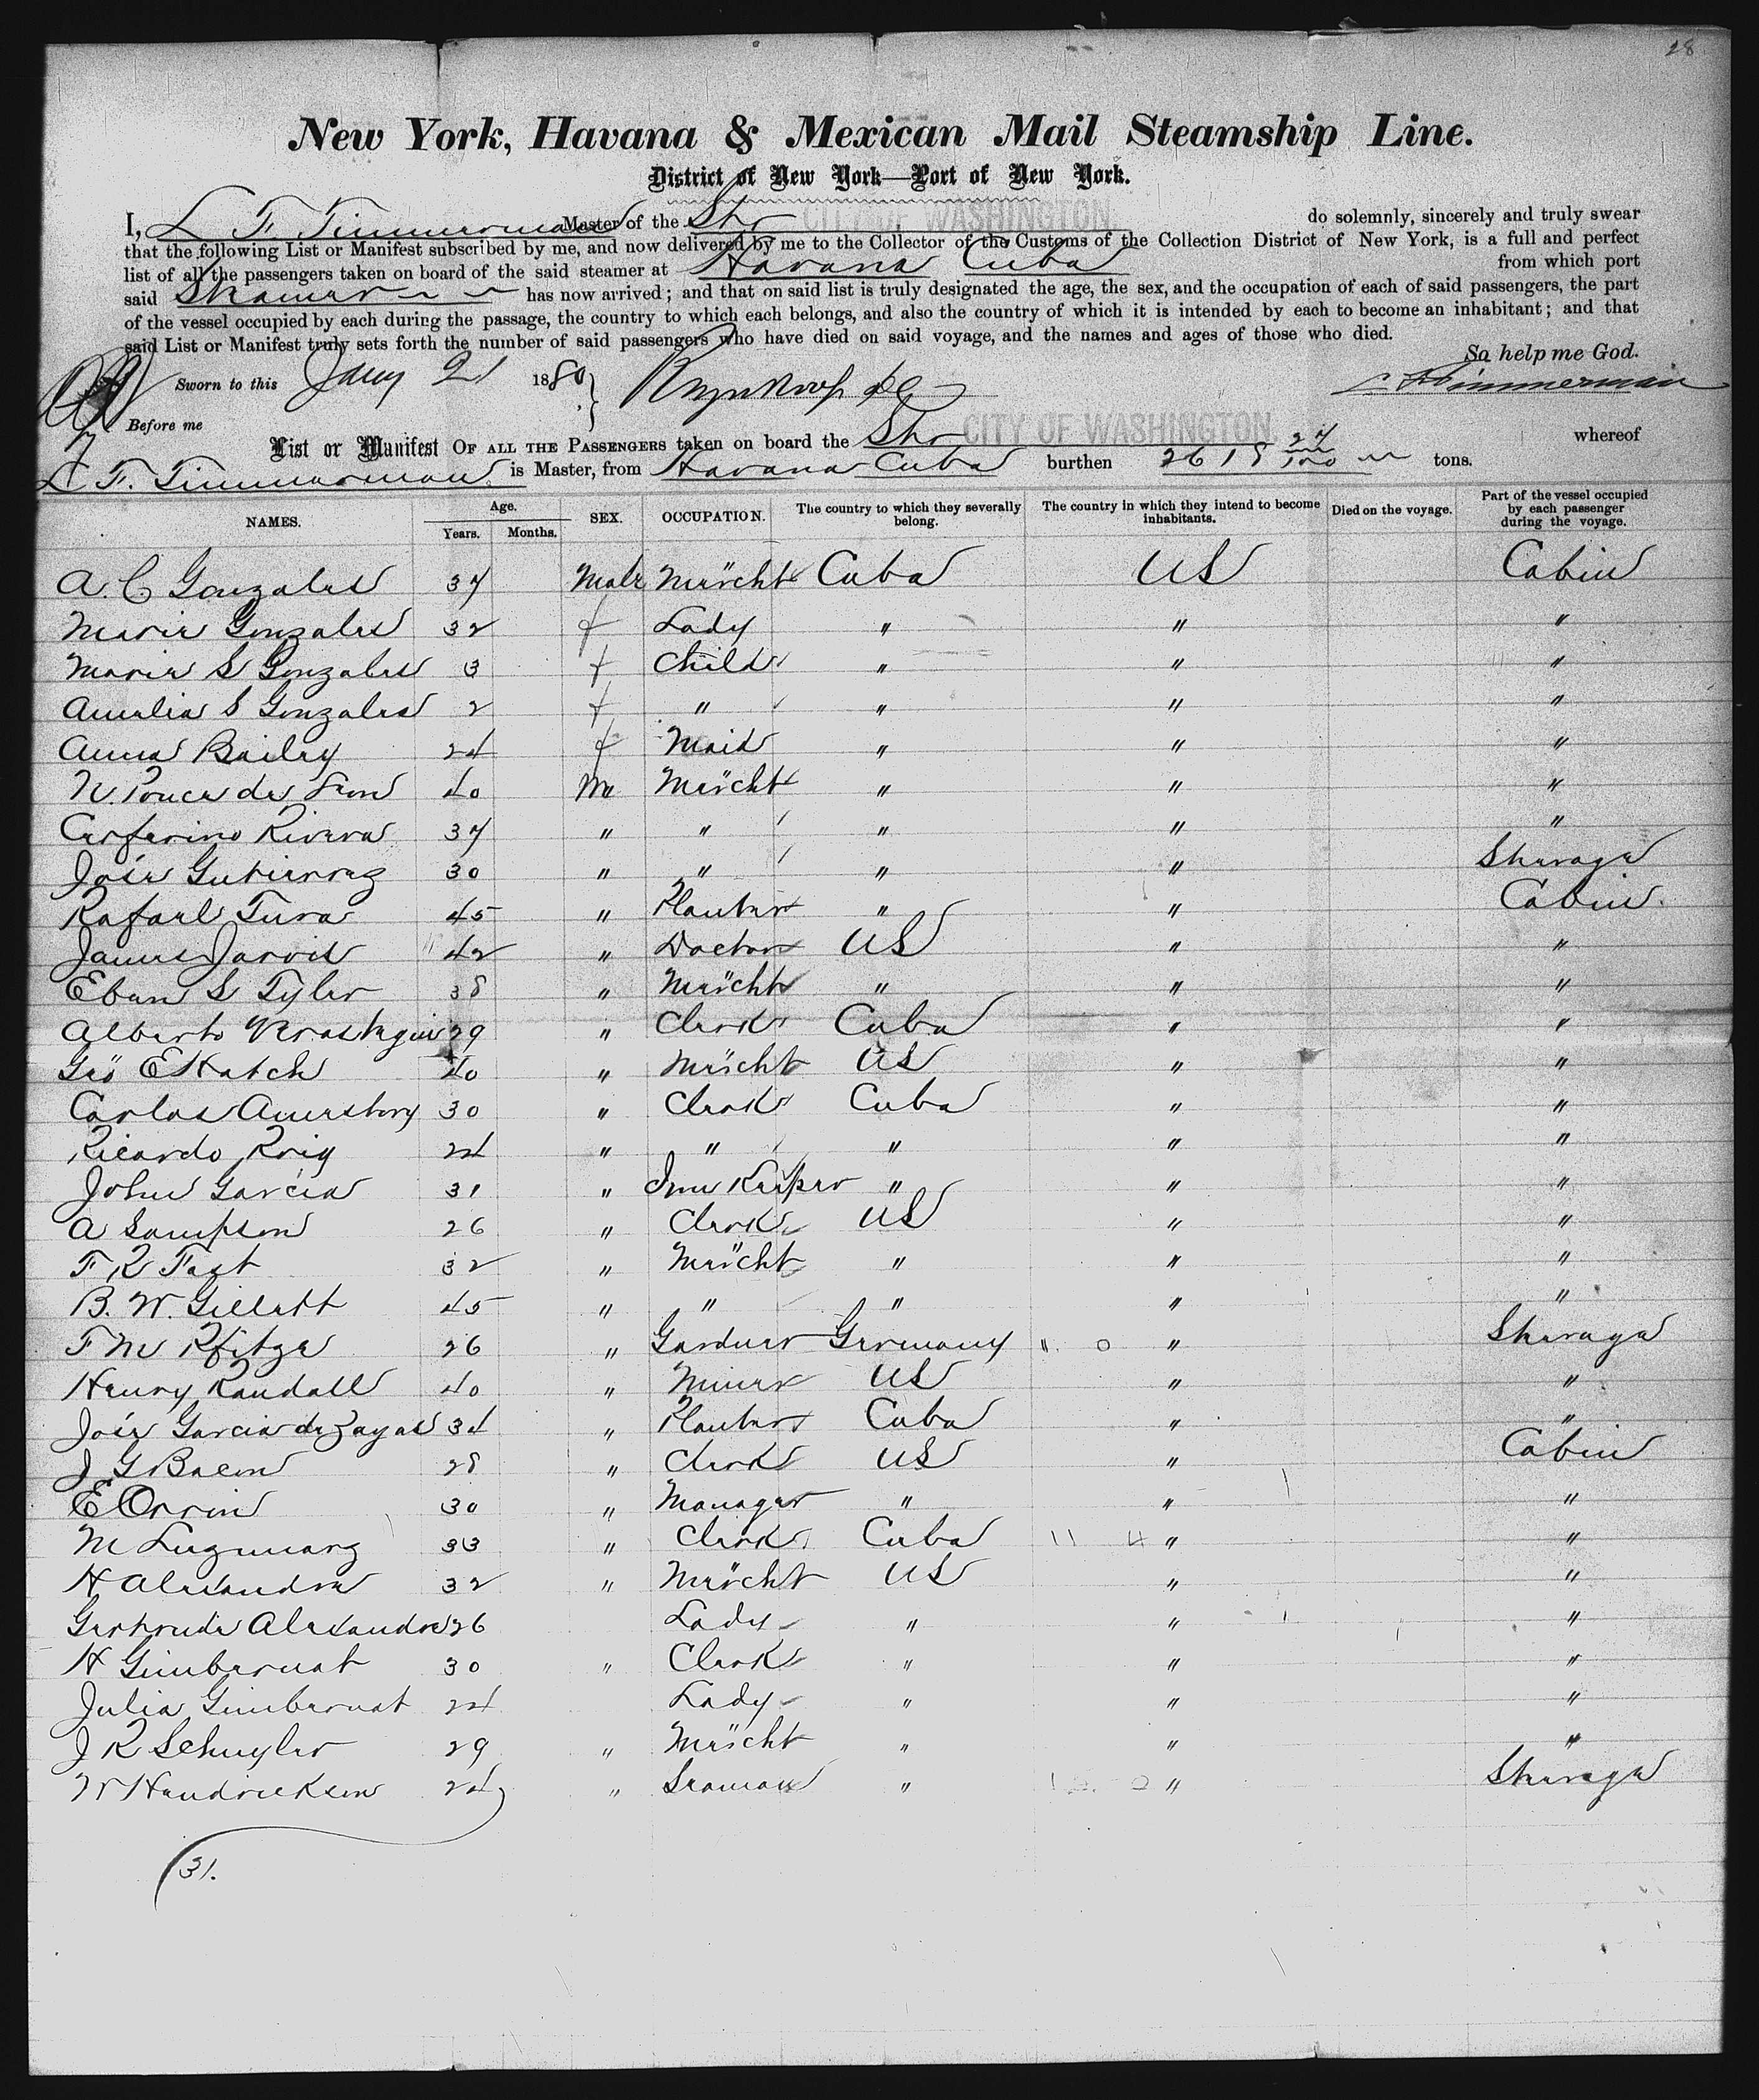 28
New York, Havana & Mexican Mail Steamship Line.
District of New York—Port of New York.
I, L F Timmerman Master of the Str CITY OF WASHINGTON do solemnly, sincerely and truly swear
that the following List or Manifest subscribed by me, and now delivered by me to the Collector of the Customs of the Collection District of New York, is a full and perfect
list of all the passengers taken on board of the said steamer at Havana Cuba from which port
said Steamer has now arrived; and that on said list is truly designated the age, the sex, and the occupation of each of said passengers, the part
of the vessel occupied by each during the passage, the country to which each belongs, and also the country of which it is intended by each to become an inhabitant; and that
said List or Manifest truly sets forth the number of said passengers who have died on said voyage, and the names and ages of those who died.
So help me God.
Sworn to this Jany 21 1880 L F Timmerman
Before me
List or Manifest OF ALL THE PASSENGERS taken on board the Str CITY OF WASHINGTON whereof
L F. Timmerman is Master, from Havana Cuba burthen 2618 27/100 tons.
NAMES. Age. Years. Months. SEX. OCCUPATION. The country to which they severally belong. The country in which they intend to become inhabitants. Died on the voyage. Part of the vessel occupied by each passenger during the voyage.
A. C Gonzales 37 Male Mercht Cuba US Cabin
Marie Gonzales 32 f Lady " " "
Marie S Gonzales 3 f Child " " "
Amelia S Gonzales 2 f " " " "
Anna Bailey 24 f Maid " " "
N. Ponce de Leon 40 M Mercht " " "
Ceferino Rivera 37 " " " " "
José Gutierrez 30 " " " " Steerage
Rafael Tura 45 " Planter " " Cabin
James Jarvis 42 " Doctor US " "
Eben S Tyler 38 " Mercht " " "
Alberto Verastegui 29 " Clerk Cuba " "
Geo E Hatch 40 " Mercht US " "
Carlos Amersbory 30 " Clerk Cuba " "
Ricardo Roig 24 " " " " "
John Garcia 31 " Inn Keeper " " "
A Sampson 26 " Clerk US " "
F R Fast 32 " Mercht " " "
B. W. Gillett 45 " " " " "
F M 26 " Gardner Germany " Steerage
Henry Randall 40 " Miner US " "
José Garcia de Zayas 34 " Planter Cuba " "
J G Bacon 28 " Clerk US " Cabin
E Orrin 30 " Manager " " "
M 33 " Clerk Cuba " "
H Alexandre 32 " Mercht US " "
Gertrude Alexandre 26 Lady " " "
H Gimbernat 30 " Clerk " " "
Julia Gimbernat 24 Lady " " "
J R Schuyler 29 " Mercht " " "
W Hendrickson 24 " Seaman " " Steerage
31.